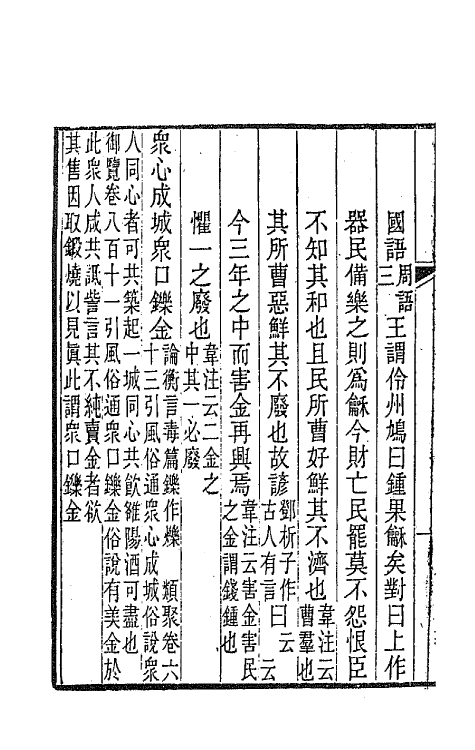 國語周語三王謂伶州鳩曰鍾果龢矣對曰上作
器民備樂之則爲龢今財亡民罷莫不怨恨臣
不知其和也且民所曹好鮮其不濟也韋注云曹羣也
其所曹惡鮮其不廢也故諺鄧析子作古人有言曰云云
今三年之中而害金再興焉韋注云害金害民之金謂錢鍾也
懼一之廢也韋注云二金之中其一必廢
衆心成城衆口鑠金論衡言毒篇鑠作爍　類聚卷六十三引風俗通衆心成城俗說衆
人同心者可共築起一城同心共飲雒陽酒可盡也
御覽卷八百十一引風俗通衆口鑠金俗說有美金於
此衆人咸共詆訾言其不純賣金者欲
其售因取鍛燒以見眞此謂衆口鑠金